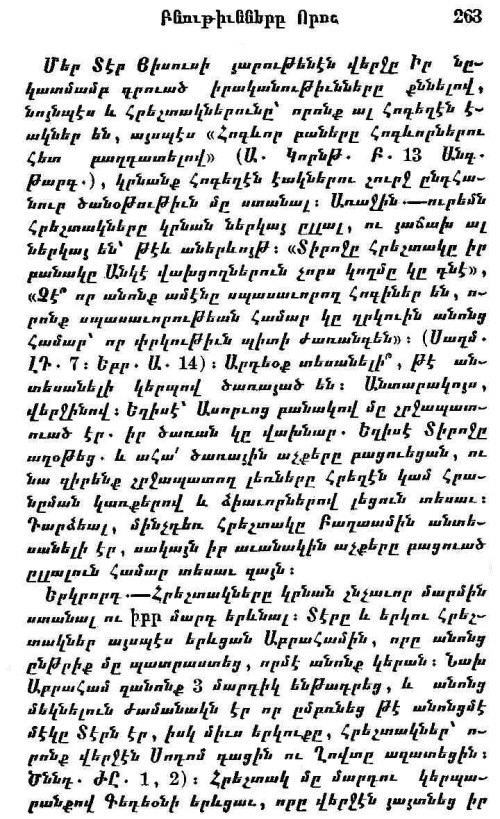 Բնութիւնները Որոշ 263
Մեր Տէր Յիսուսի յարութենէն վերջը Իր նը-
կատմամբ գրուած իրականութիւնները քննելով,
նոյնպէս և Հրեշտակներունը՝ որոնք ալ Հոգեղէն է-
ակներ են, այսպէս «Հոգևոր բաները Հոգևորներու
Հետ բաղդատելով» (Ա. Կորնթ. Բ. 13 Անգ.
Թարգ.), կրնանք Հոգեղէն էակներու շուրջ ընդՀա-
նուր ծանօթութիւն մը ստանալ։ Առաջին.—ուրեմն
Հրեշտակները կրնան ներկայ ըլլալ, ու յաճախ ալ
ներկայ են՝ թէև աներևոյթ։ «Տիրոջը Հրեշտակը իր
բանակը Անկէ վախցողներուն չորս կողմը կը դնէ»,
«Չէ՞ որ անոնք ամէնը սպասաւորող Հոգիներ են, ո-
րոնք սպասաւորութեան Համար կը ղրկուին անոնց
Համար՝ որ փրկութիւն պիտի ժառանգեն»։ (Սաղմ.
ԼԴ. 7։ Եբր. Ա. 14)։ Արդեօք տեսանելի՞, թէ ան-
տեսանելի կերպով ծառայած են։ Անտարակոյս,
վերջինով։ Եղիսէ՝ Ասորւոց բանակով մը շրջապատ-
ուած էր. իր ծառան կը վախնար. Եղիսէ Տիրոջը
աղօթեց. և աՀա՛ ծառային աչքերը բացուեցան, ու
նա զիրենք շրջապատող լեռները Հրեղէն կամ Հրա-
նըման կառքերով և ձիաւորներով լեցուն տեսաւ։
Դարձեալ, մինչդեռ Հրեշտակը Բաղաամին անտե-
սանելի էր, սակայն իր աւանակին աչքերը բացուած
ըլլալուն Համար տեսաւ զայն։
Երկրորդ.—Հրեշտակները կրնան շնչաւոր մարմին
ստանալ ու իբր մարդ երևնալ։ Տէրը և երկու Հրեշ-
տակներ այսպէս երևցան ԱբրաՀամին, որը անոնց
ընթրիք մը պատրաստեց, որմէ անոնք կերան։ Նախ
ԱբրաՀամ զանոնք 3 մարդիկ ենթադրեց, և անոնց
մեկնելուն ժամանակն էր որ ըմբռնեց թէ անոնցմէ
մէկը Տէրն էր, իսկ միւս երկուքը, Հրեշտակներ՝ ո-
րոնք վերջէն Սոդոմ գացին ու Ղովտը ազատեցին։
Ծննդ. ԺԸ. 1, 2)։ Հրեշտակ մը մարդու կերպա-
րանքով Գեդեօնի երևցաւ, որը վերջէն յայտնեց իր